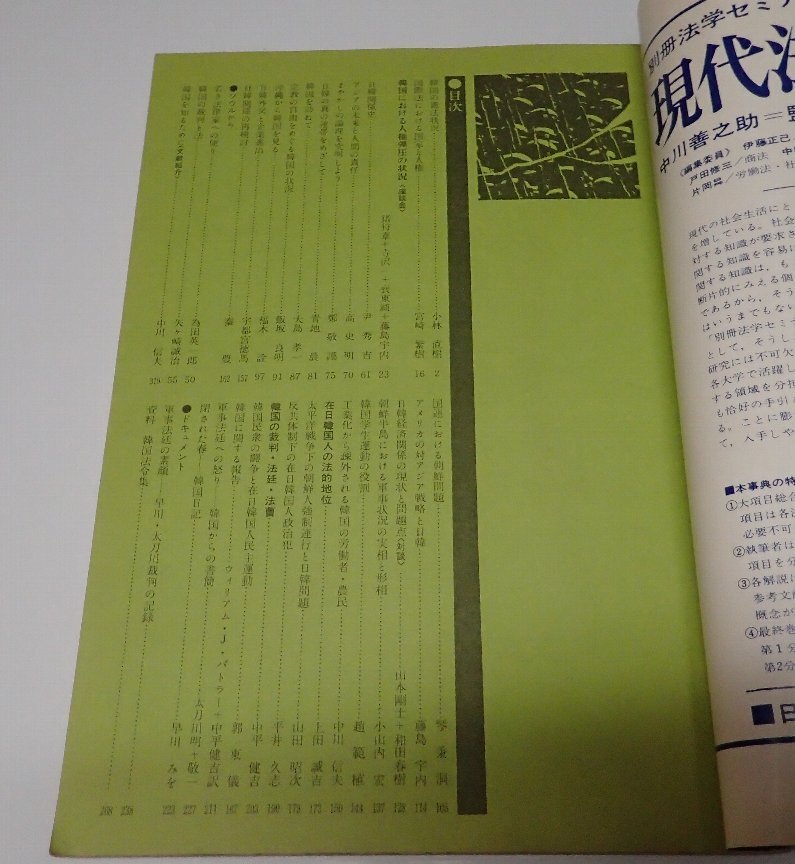 ●目次
韓国の憲法状況 小林直樹 2
国際法における国家と人権 宮崎繁樹 16
韓国における人権弾圧の状況〈座談会〉 藤島宇内 23
日韓関係史 尹秀吉 61
アジアの未来と人間の責任 高史明 70
まやかしの論理を究明しよう 鄭敬謨 75
日韓の真の連帯をめざして 青地晨 81
韓国を訪ねて 大島孝一 87
宗教の自由をめぐる韓国の状況 飯坂良明 91
沖縄から韓国を見る 福木詮 97
日韓関係の再検討 宇都宮徳馬 157
●ソウルから 秦豊 162
若き法律家への便り 為田英一郎 50
韓国の裁判と法 矢ヶ崎誠治 55
韓国を知るために〈文献紹介〉 中川信夫 319
国連における朝鮮問題 105
アメリカの対アジア戦略と日韓 藤島宇内 114
日韓経済関係の現状と問題点〈対談〉 山本剛士+和田春樹 125
朝鮮半島における軍事状況の実相と形相 小山内宏 137
韓国学生運動の役割 趙範植
工業化から疎外される韓国の労働者・農民 中川信夫 150
在日韓国人の法的地位 上田誠吉 172
太平洋戦争下の朝鮮人強制連行と日韓問題 山田昭次 178
反共体制下の在日韓国人政治犯 平井久志 190
韓国の裁判・法廷・法曹 中平健吉 205
韓国民衆の闘争と在日韓国人民主運動 郭東儀 167
韓国に関する報告 ウィリアム・J・バトラー+中平健吉訳 211
軍事法廷への怒り――韓国からの書簡 太刀川明+敬一 227
閉された春――韓国日記 早川みを 223
●ドキュメント
軍事法廷の素顔――早川・太刀川裁判の記録 238
資料 韓国法令集 268
別冊法学セミナ
現代法
中川善之助=監
〈編集委員〉 伊藤正己
戸田修三/商法
片岡曻/労働法・社
現代の社会生活にと
を増している。社会
対する知識が要求さ
関する知識を容易に
関する知識は、も
断片的にみえる個
であるから、そう
はいうまでもない
「別冊法学セミナ
として、そうし
研究には不可欠
各大学で活躍し
する領域を分担
も恰好の手引
る。ことに膨
て、入手しや
■本事典の特
①大項目総合
項目は各法
必要不可
②執筆者は
項目を分
③各解説に
参考文献
概念が
④最終巻
第1分
第2分
■日